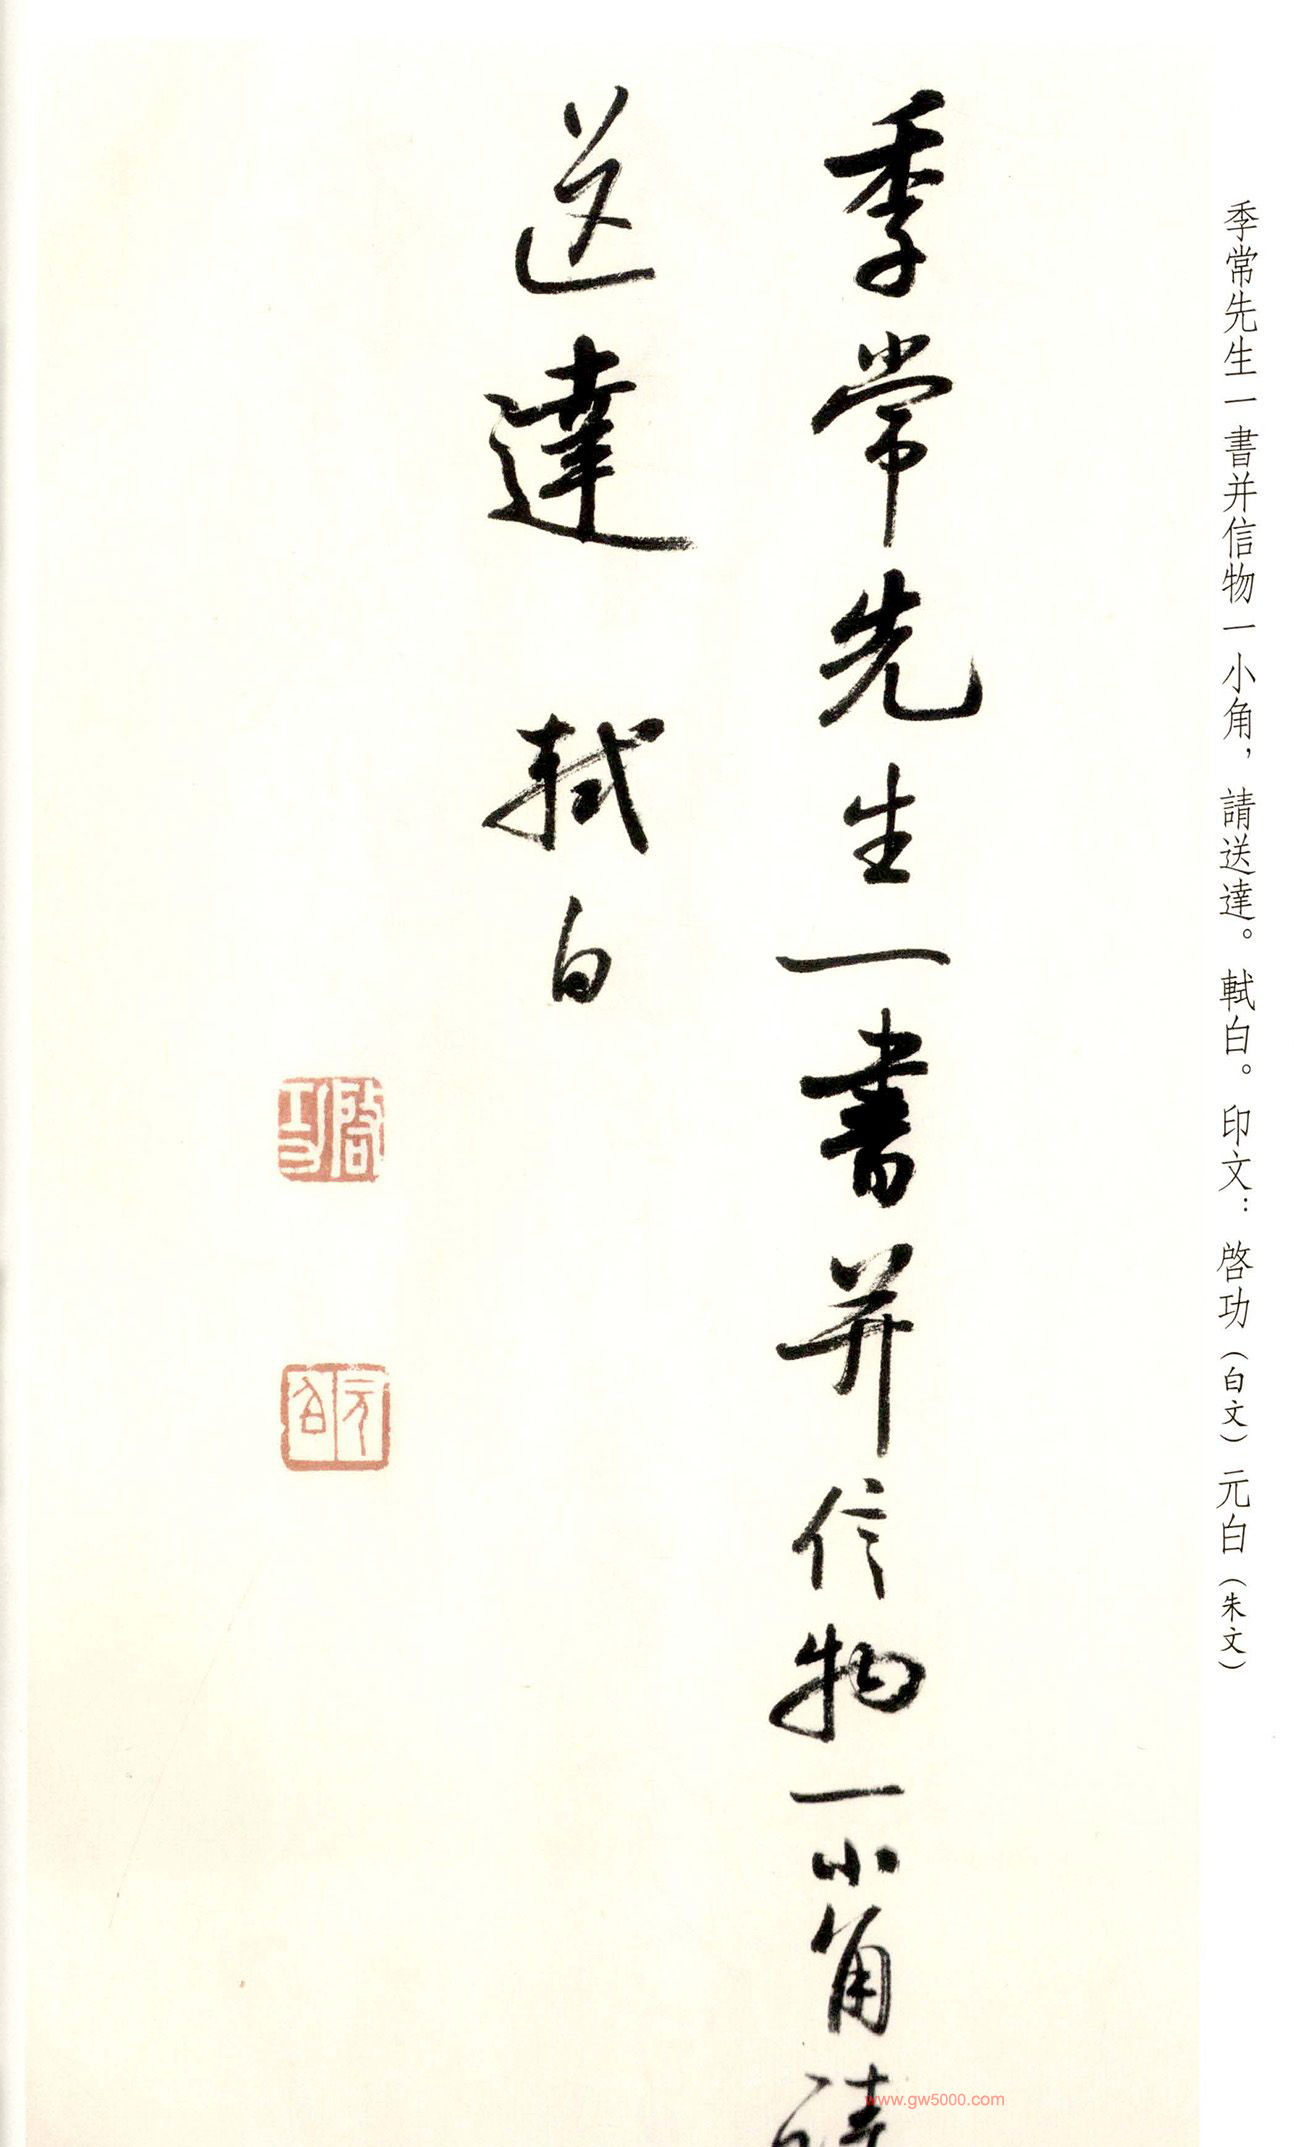 季常先生一書并信物一小角，請送達。軾白。印文：啓功（白文）元白（朱文）
季常先生一書并信物一小角請
送達 軾白
啓功
元白
www.gw5000.com